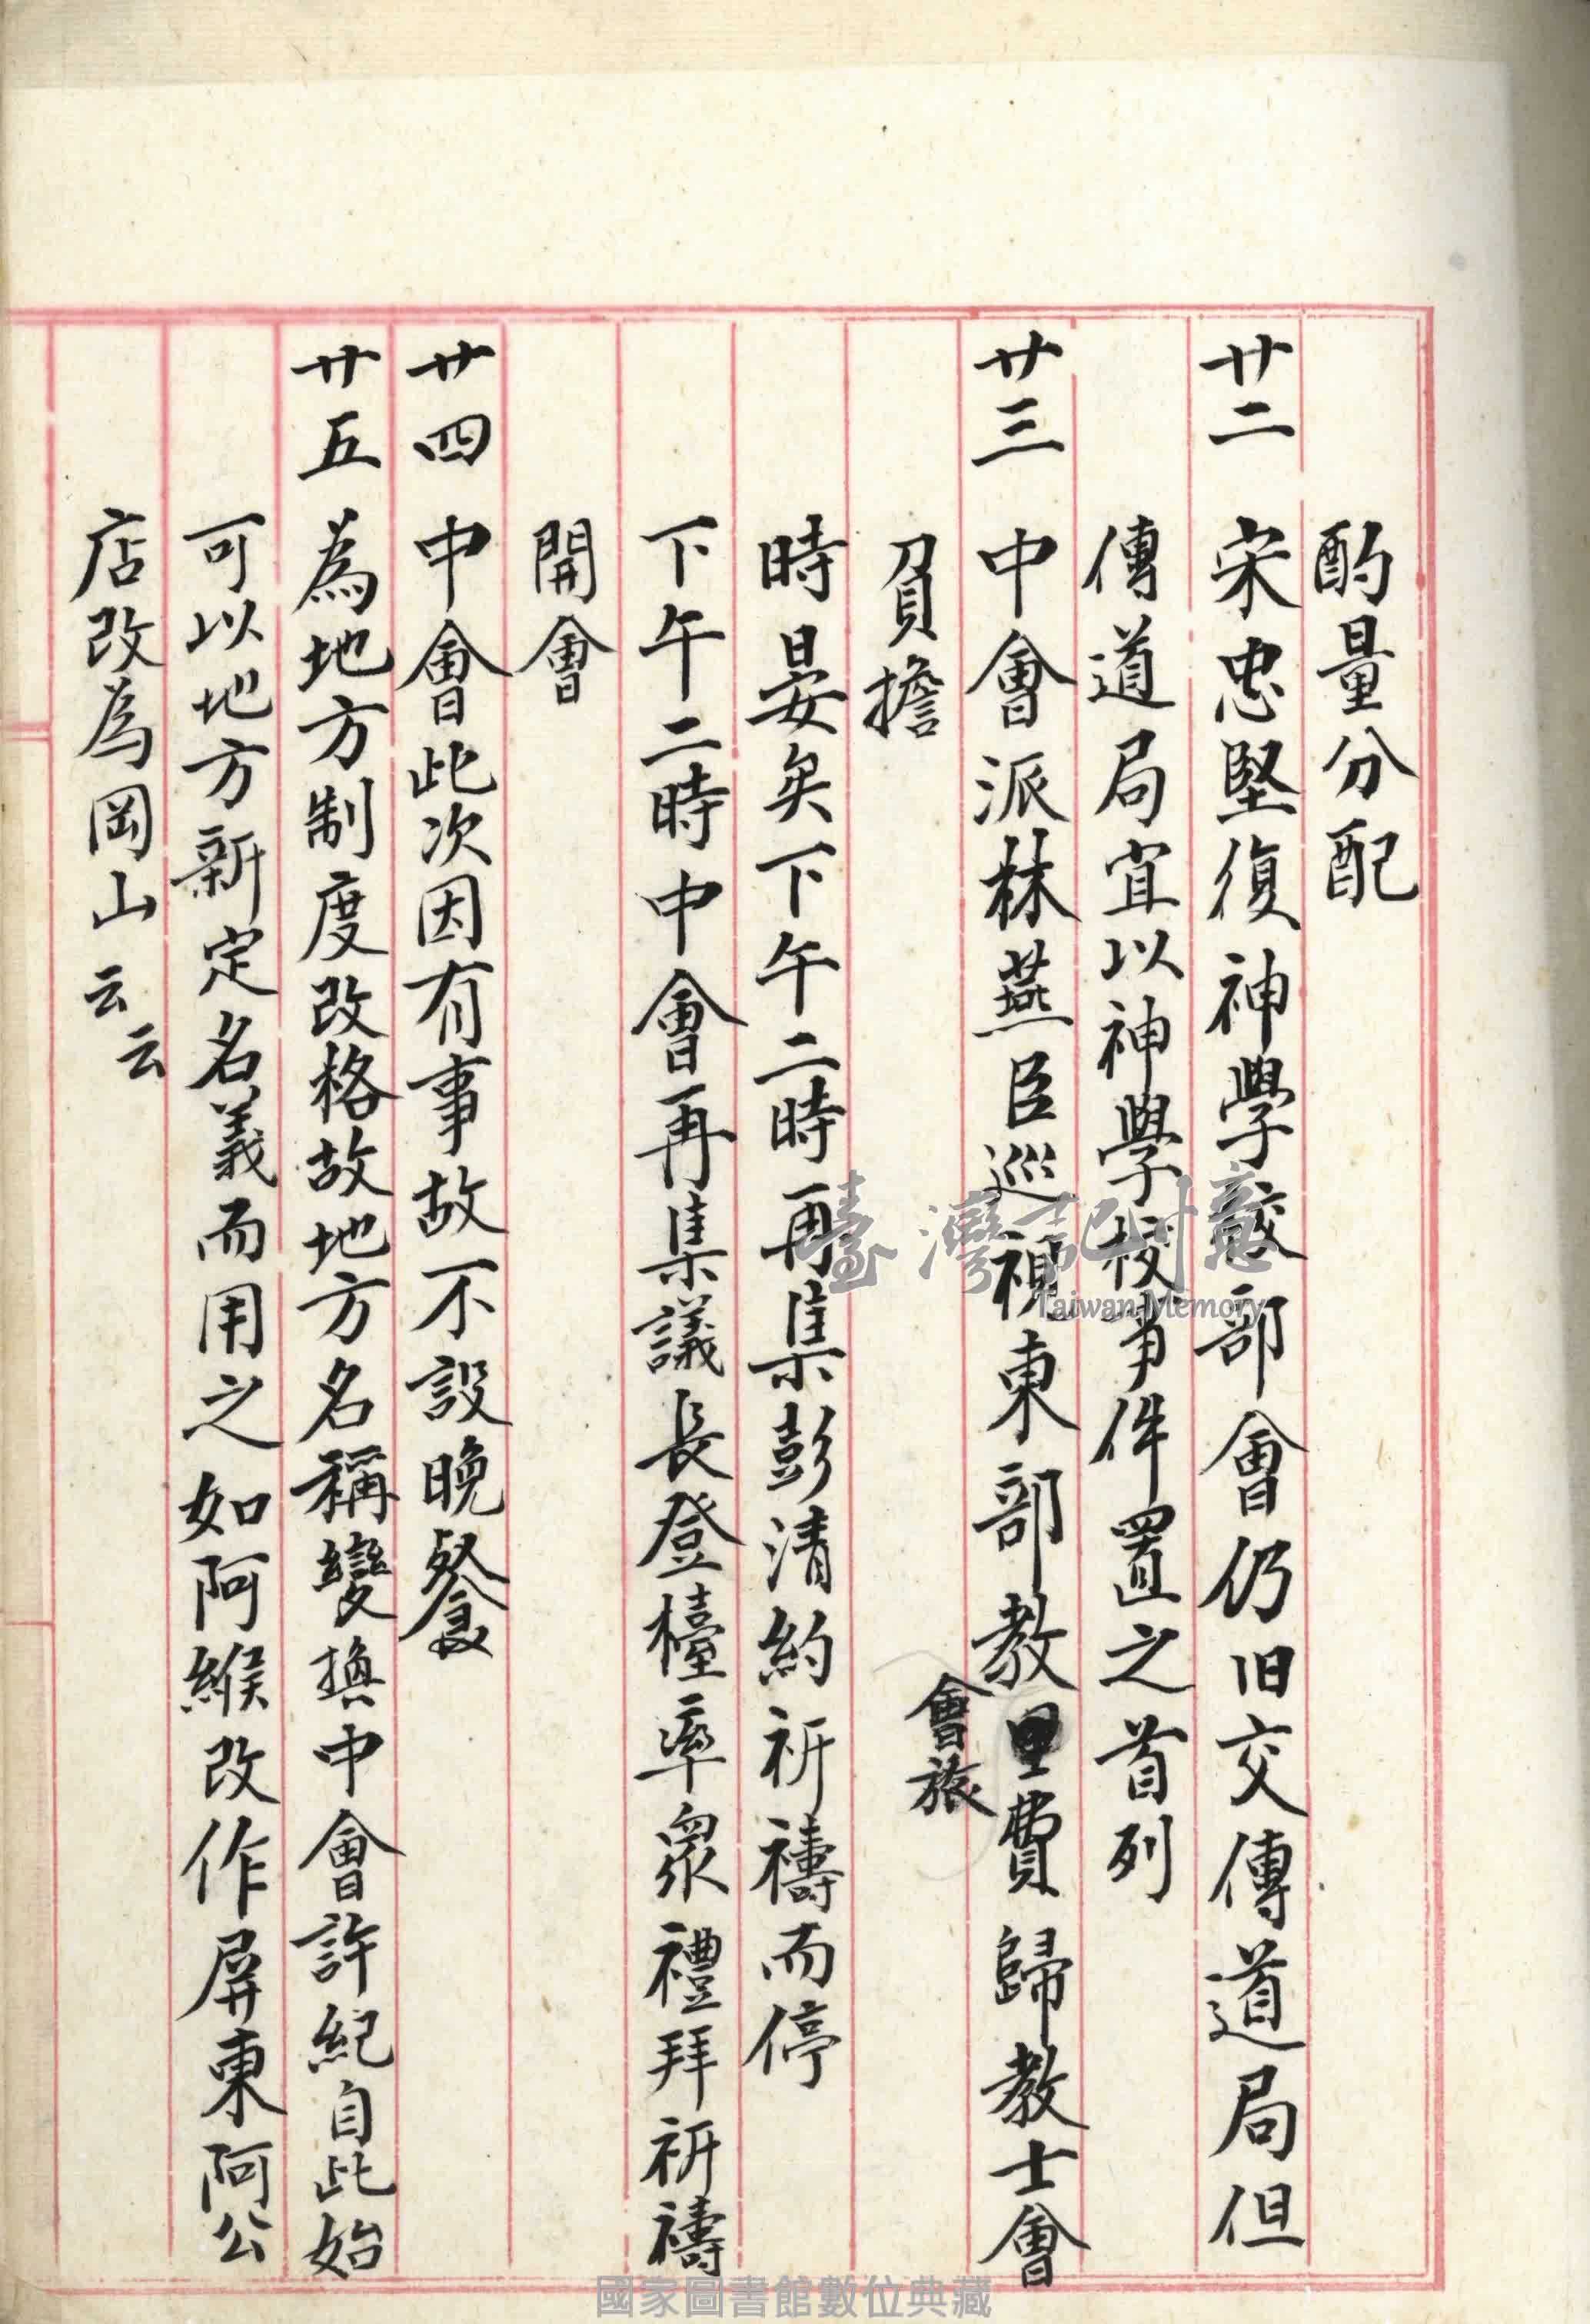 酌量分配
廿二 宋忠堅復神學校部會仍旧交傳道局但
傳道局宜以神學校事件置之首列
廿三 中會派林燕臣巡視東部教會旅費歸教士會
負擔
時晏矣下午二時再集彭清約祈禱而停
下午二時中會再集議長登檯率眾禮拜祈禱
開會
廿四 中會此次因有事故不設晚餐
廿五 為地方制度改格故地方名稱變換中會許紀自此始
可以地方新定名義而用之如阿緱改作屏東阿公
店改為岡山云云
臺灣記憶
Taiwan Memory
國家圖書館數位典藏